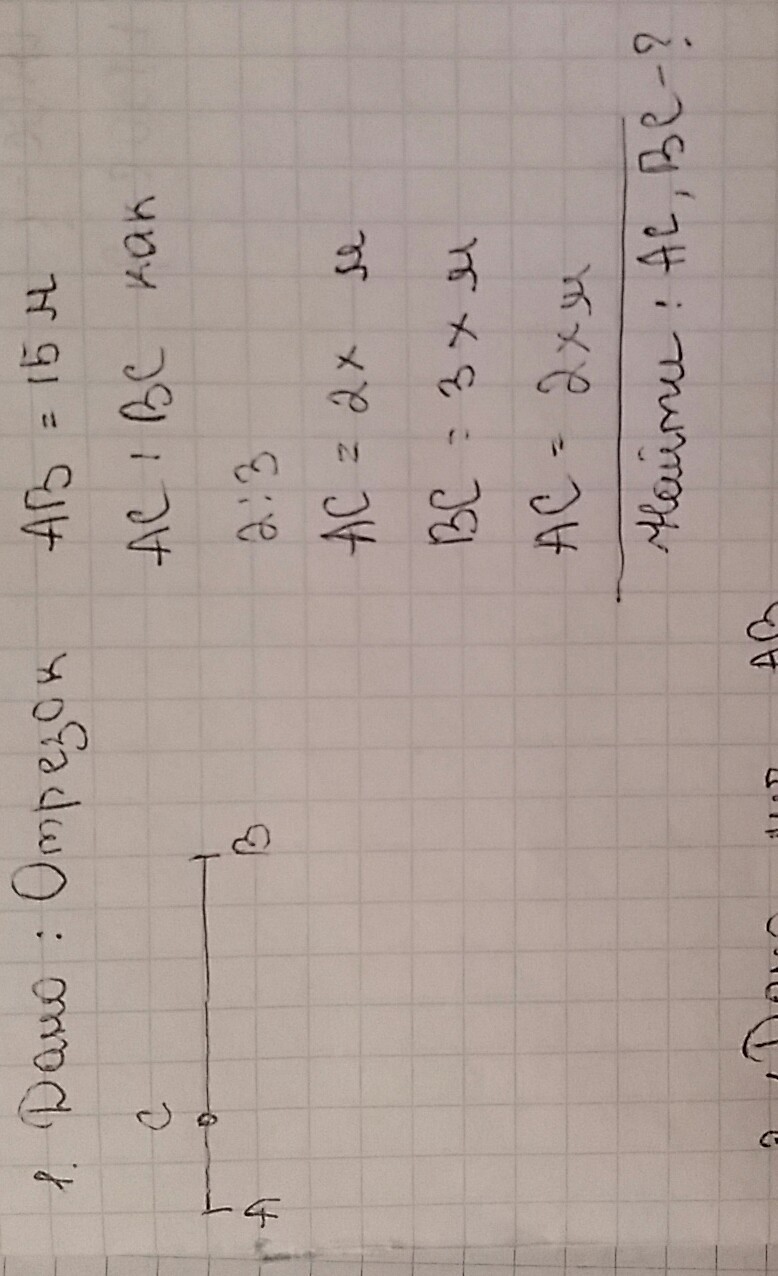 1. Дано: Отрезок AB = 15 м
C
A
B
AC : BC как
2:3
AC = 2x м
BC = 3x м
AC = 2x м
Найти: AC, BC - ?
2. Дано
AB